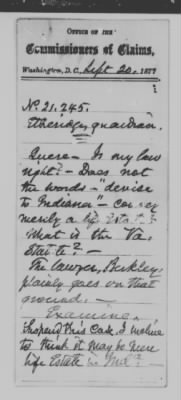 OFFICE OF THE
Commissioners of Claims,
Washington, D.C., Sept 20. 1877
No. 21.245.
Etheridge, guardian.
Quere - Is my law
right? - Does not
the words - "devise
to Indiana" - convey
merely a life estate?
What is the Va.
Statute? -
The lawyer, Berkley
plainly goes on that
ground. -
Examine.
Suspend this Case, I incline
to think it may be mere
Life Estate in